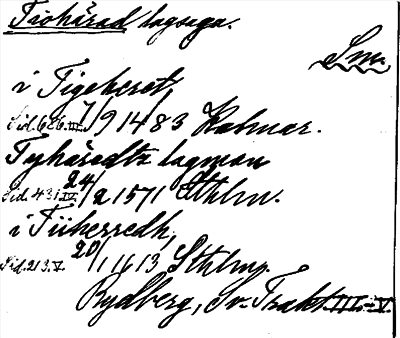 Tiohärad lagsaga.
Sm.
i Tigeheret,
Sid. 686.III. 7/9 1483 Kalmar.
Tyhäradtz lagman
Sid. 431.IV. 24/2 1571 Sthlm.
i Tiiherredh,
Sid. 213.V. 20/1 1613 Sthlm.
Rydberg, Sv. Trakt. III-V.